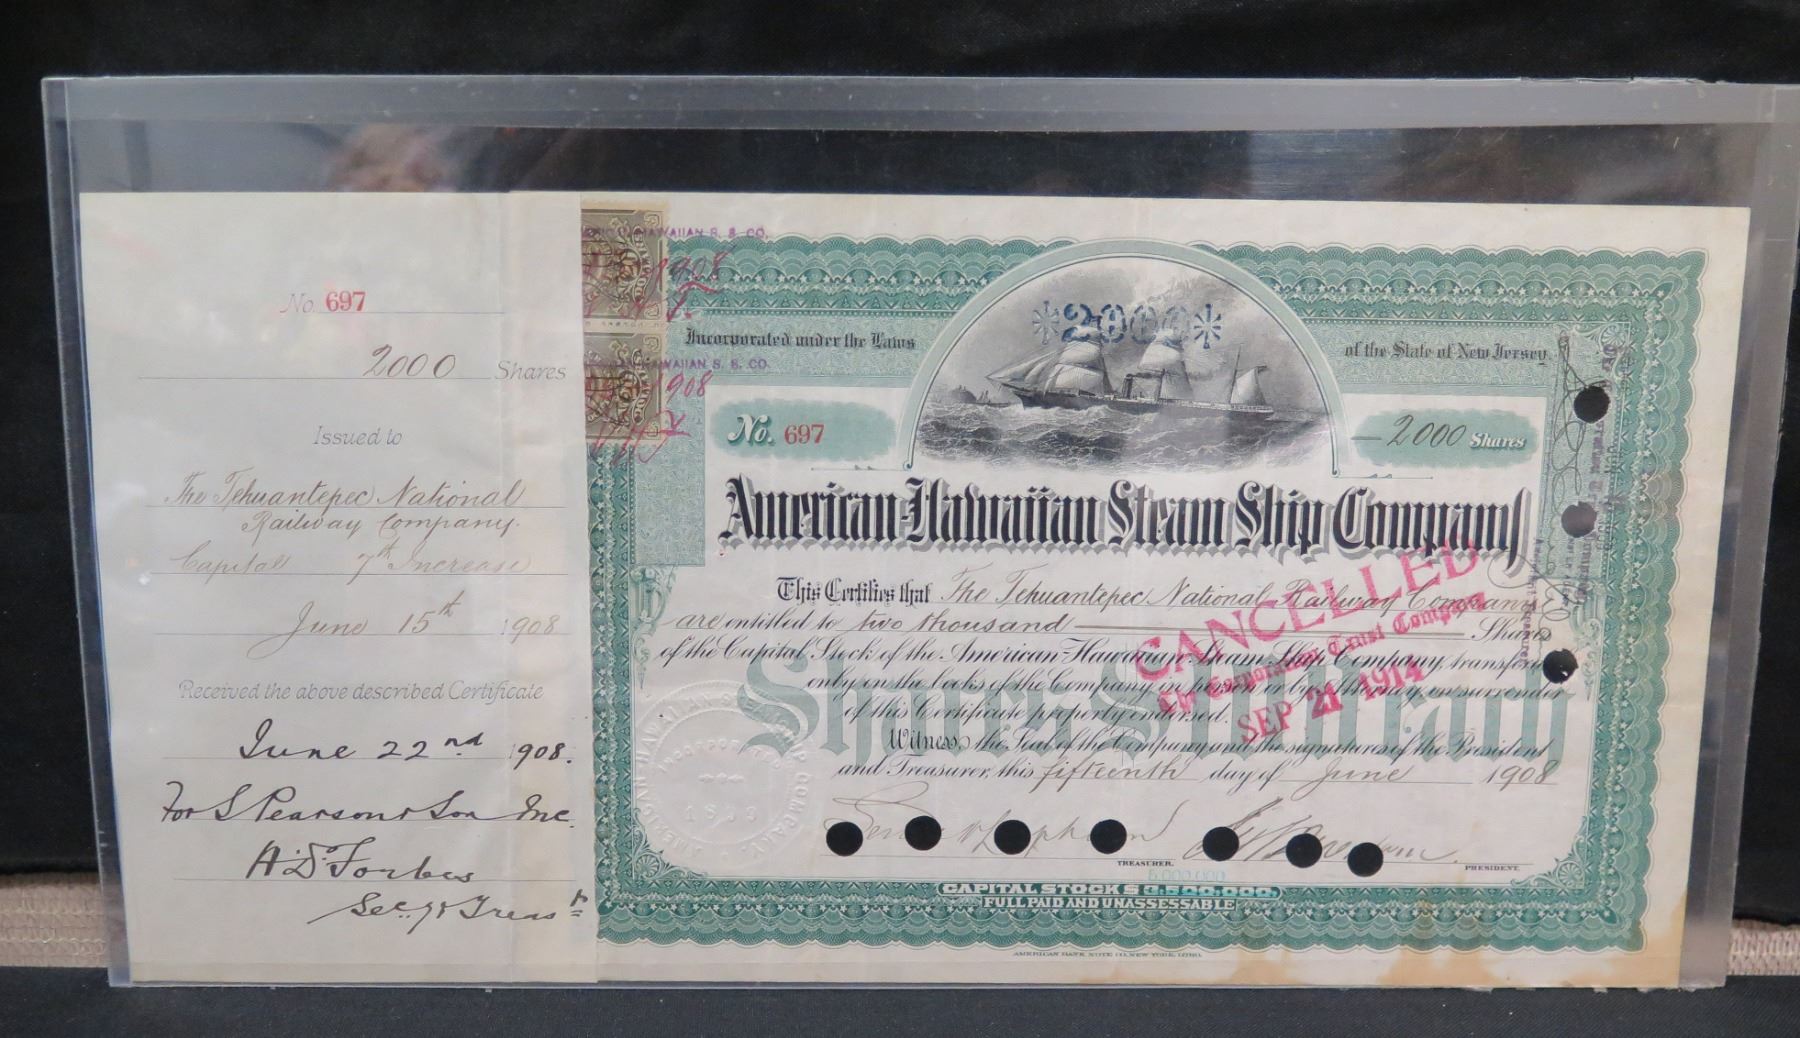 No. 697
2000 Shares
Issued to
The Tehuantepec National
Railway Company.
Capital 7th Increase
June 15th 1908
Received the above described Certificate
June 22nd 1908.
For S Pearson & Son Inc.
A D Forbes
Sec. & Treas
HAWAIIAN S. S. CO.
1908
HAWAIIAN S. S. CO.
1908
*2000*
Incorporated under the Laws
of the State of New Jersey.
No. 697
2000 Shares
American-Hawaiian Steam Ship Company
This Certifies that The Tehuantepec National Railway Company
are entitled to two thousand Shares
of the Capital Stock of the American-Hawaiian Steam Ship Company, transferable
only on the books of the Company in person or by Attorney, on surrender
of this Certificate properly endorsed.
Witness, the Seal of the Company and the signatures of the President
and Treasurer, this fifteenth day of June 1908
CANCELLED
Trust Company
SEP 21 1914
TREASURER.
PRESIDENT.
5,000,000
CAPITAL STOCK $ 3,500,000.
FULL PAID AND UNASSESSABLE
AMERICAN BANK NOTE CO. NEW YORK.